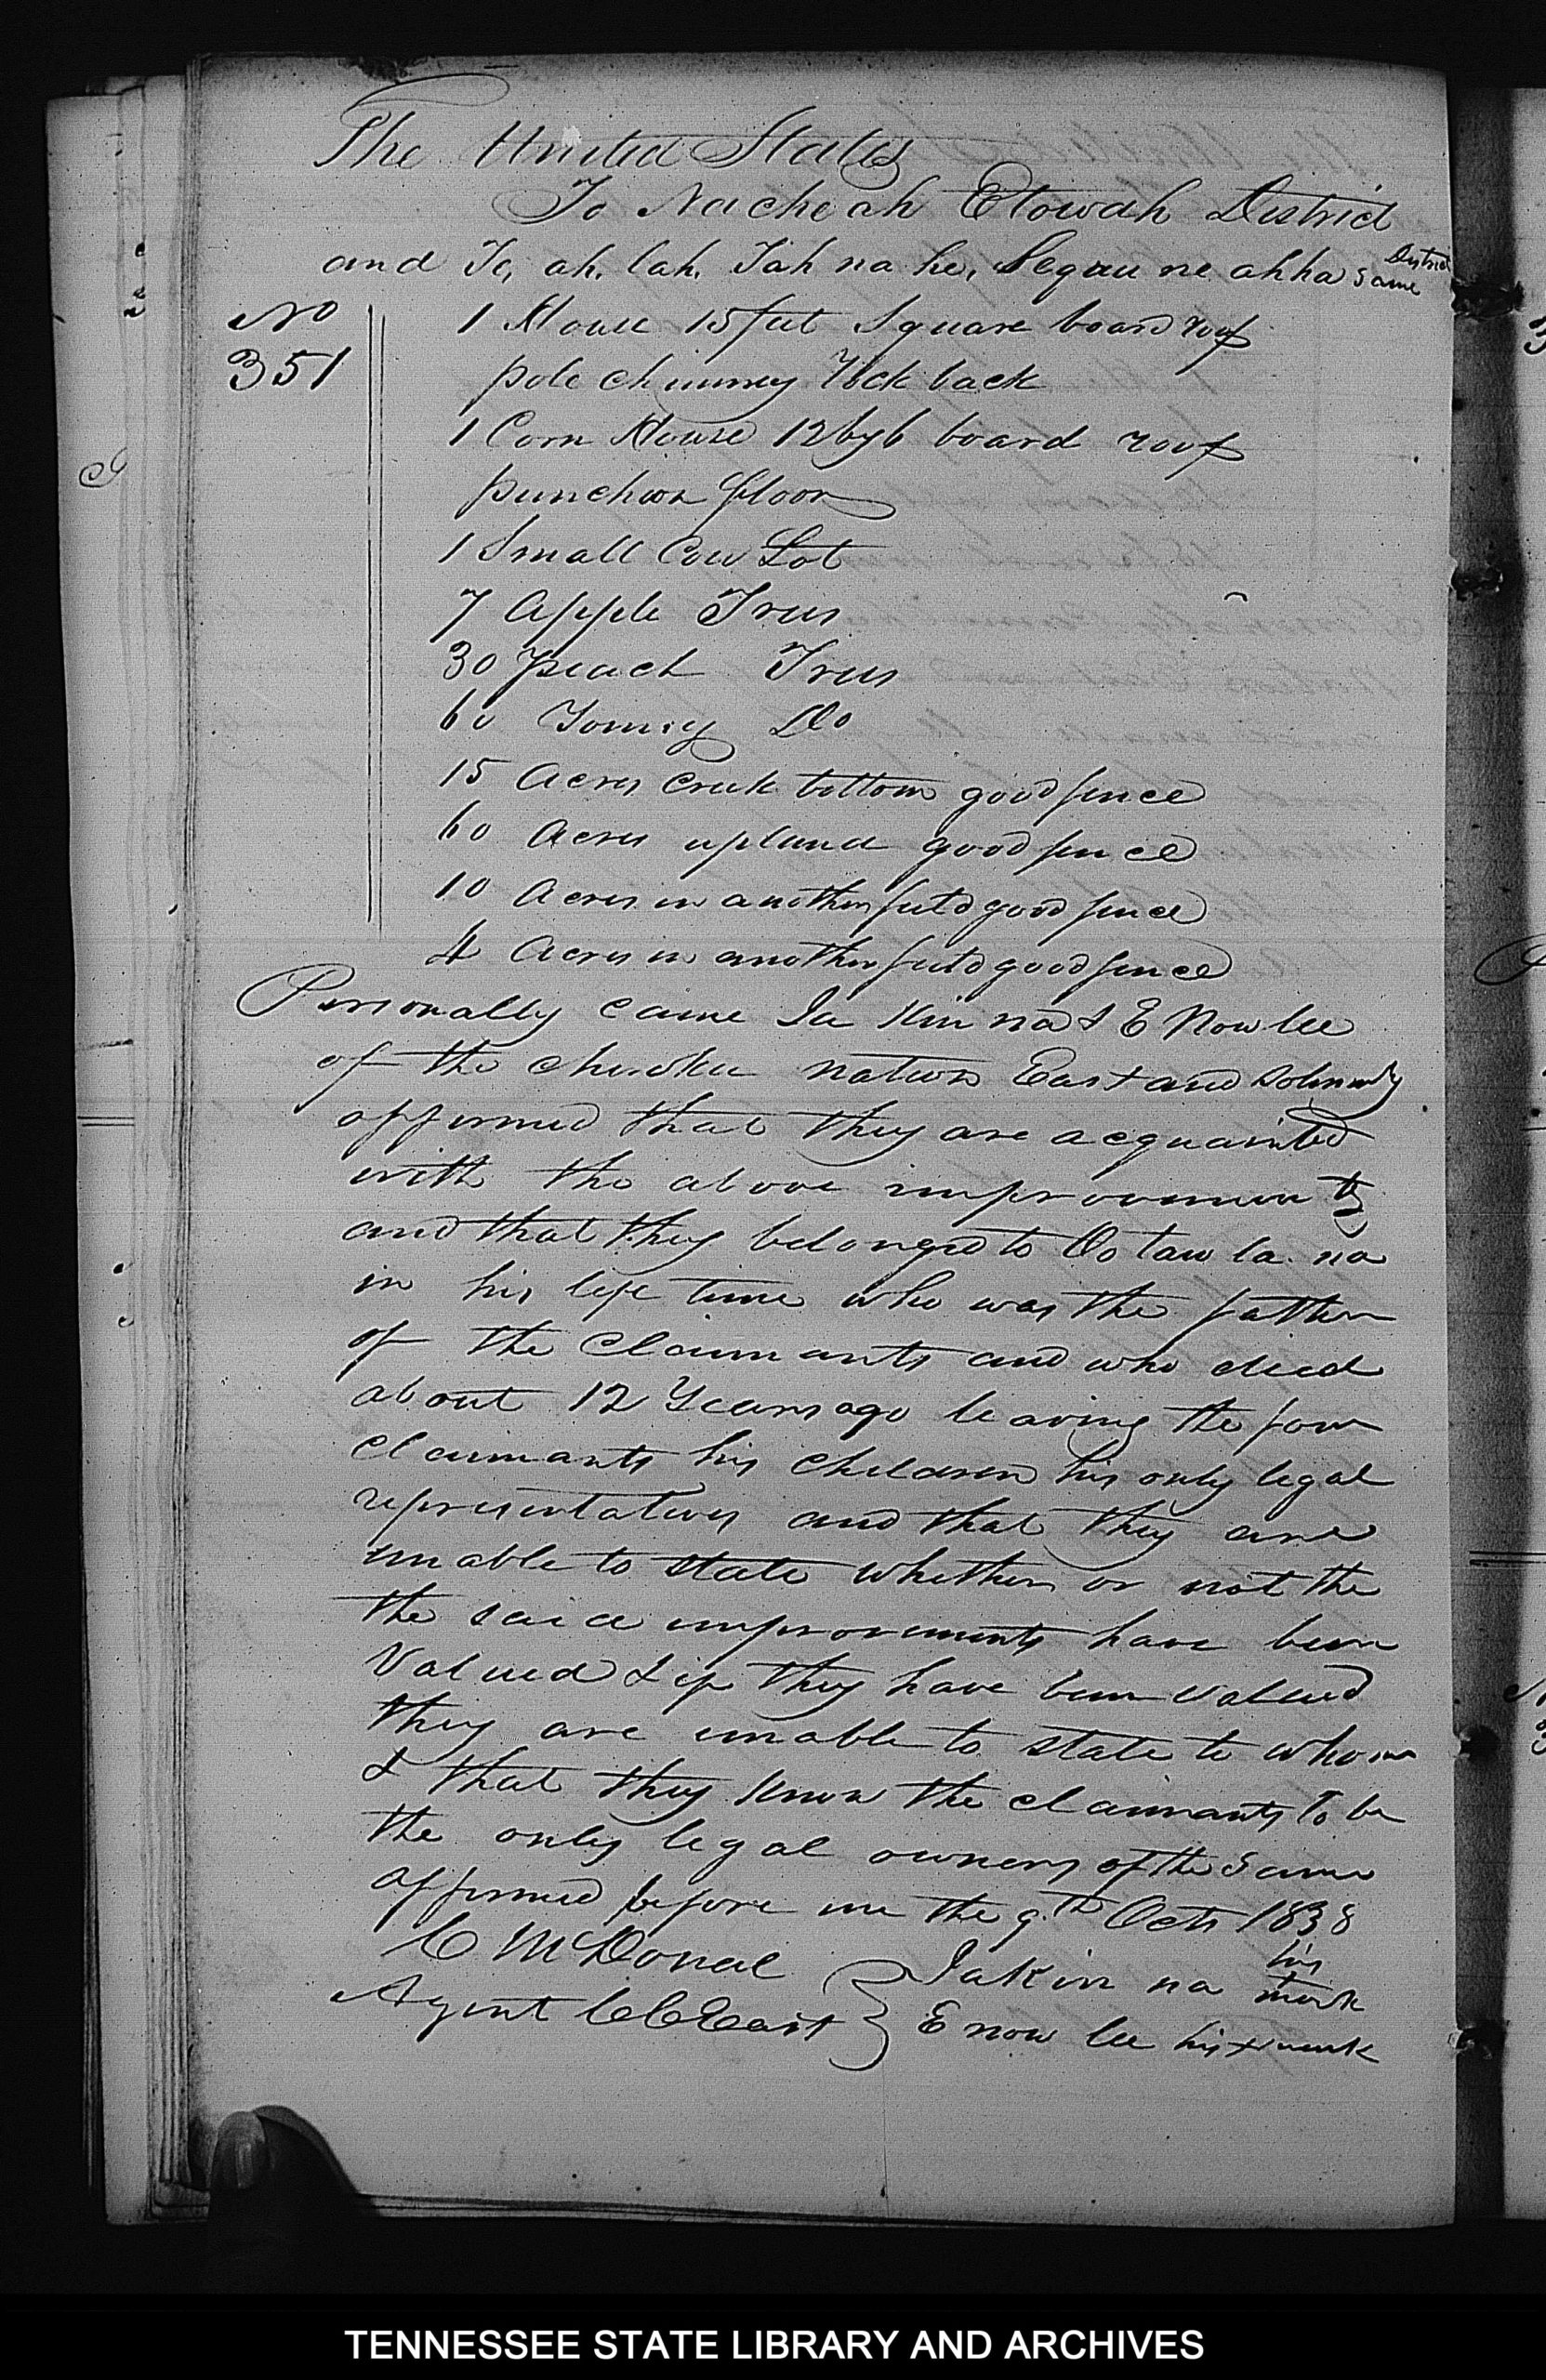 The United States
To Nacheah Etowah District
and Te, ah, lah, Tah na he, Segau ne ahha Same District
No
351
1 House 15 feet Square board roof
pole chimney Rock back
1 Corn House 12 by 6 board roof
puncheon floor
1 Small Cow Lot
7 Apple Trees
30 peach Trees
60 Young Do
15 Acres Creek bottom good fence
60 Acres upland good fence
10 Acres in another field good fence
4 Acres in another field good fence
Personally came Ja Kin na & E Now lee
of the cherokee nation East and Solemnly
affirmed that they are acquainted
with the above improvements
and that they belonged to Oo taw la na
in his life time who was the father
of the Claimants and who died
about 12 Years ago leaving the four
Claimants his children his only legal
representatives and that they are
unable to state whether or not the
the said improvements have been
Valued & if they have been valued
they are unable to state to whom
& that they know the claimants to be
the only legal owners of the same
affirmed before me the 9th Octr 1838
C McDonal
Agent C C East
Jakin na his mark
E now lee his x mark
TENNESSEE STATE LIBRARY AND ARCHIVES